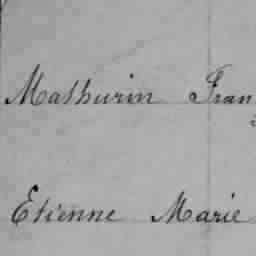 Mathurin Fran
Etienne Marie